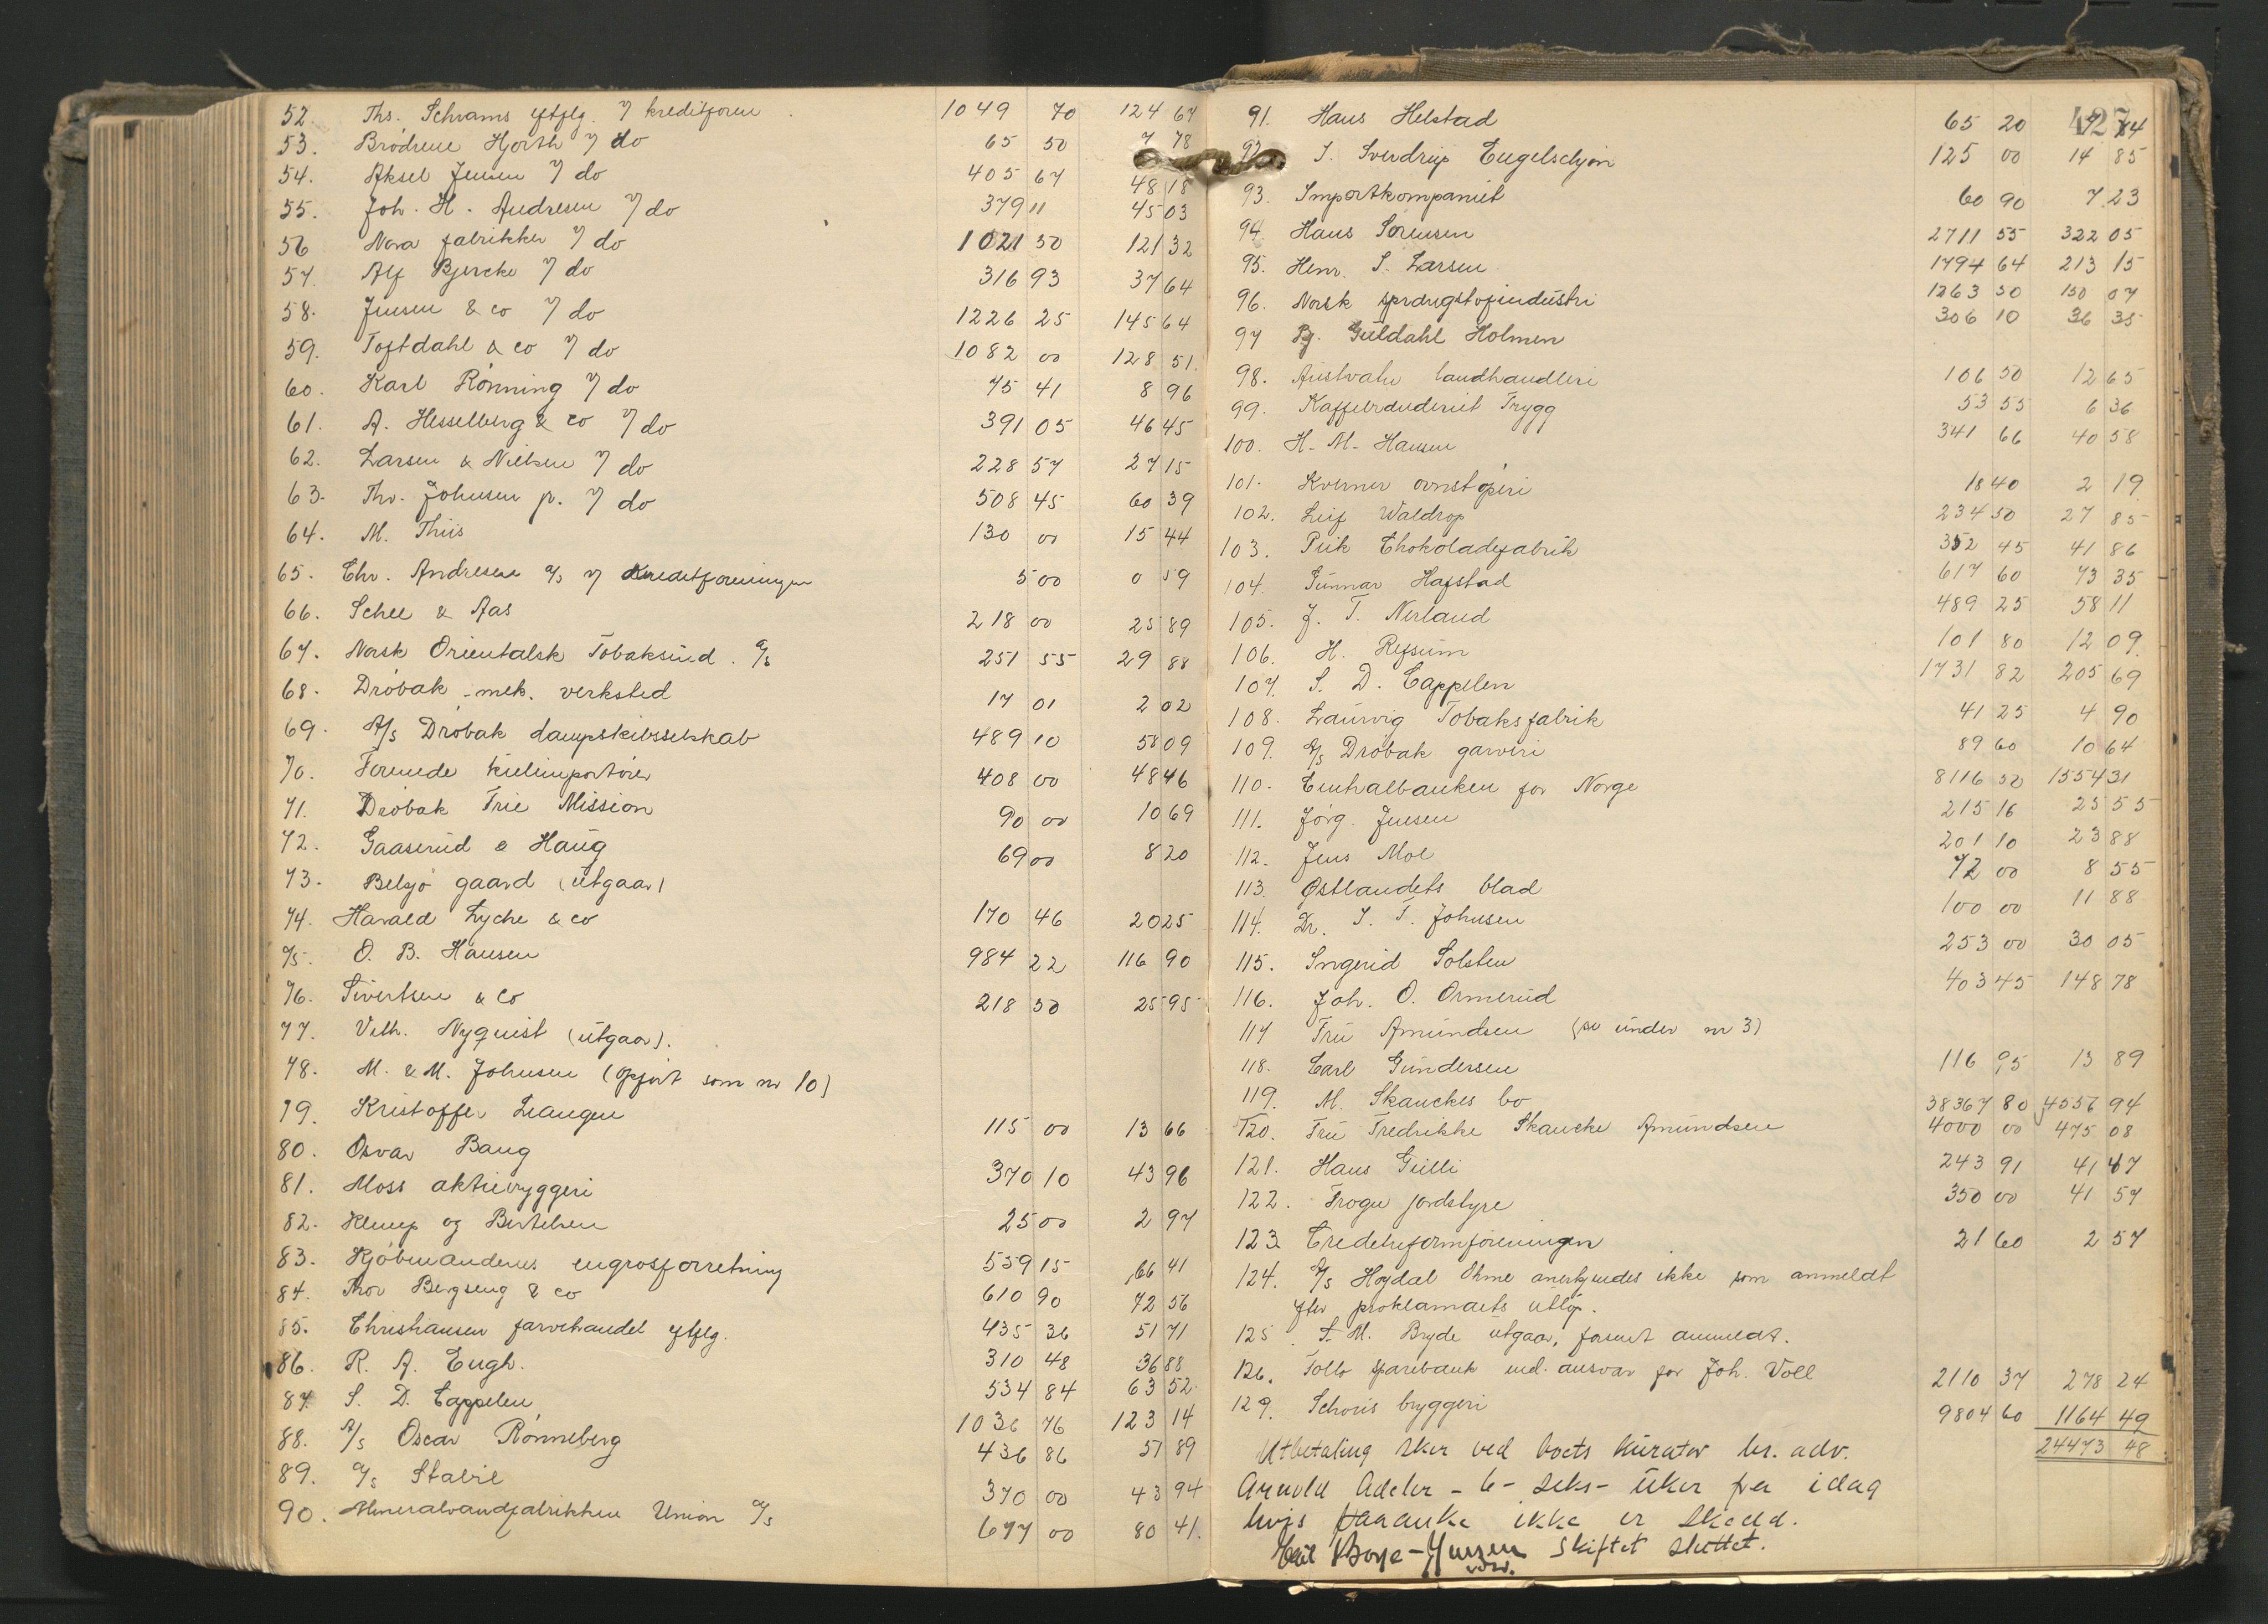 52. Ths. Schrams eftflg. v/ kreditforen. 1049 70 124 67
53. Brødrene Hjorth v/ do 65 50 7 78
54. Aksel Jensen v/ do 405 67 48 18
55. Joh. H. Andresen v/ do 379 11 45 03
56 Nora fabrikker v/ do 1021 50 121 32
57. Alf Bjercke v/ do 316 93 37 64
58. Jensen & co v/ do 1226 25 145 64
59. Toftdahl & co v/ do 1082 00 128 51.
60. Karl Rønning v/ do 75 41 8 96
61. A. Hesselberg & co v/ do 391 05 46 45
62. Larsen & Nielsen v/ do 228 57 27 15
63. Thv. Johnsen jr. v/ do 508 45 60 39
64. M. Thiis 130 00 15 44
65. Chr. Andresen a/s v/ Kreditforeningen 5 00 0 59
66. Schee & Aas 218 00 25 89
67. Norsk Orientalsk Tobaksind. a/s 251 55 29 88
68. Drøbak mek. verksted 17 01 2 02
69. A/s Drøbak dampskibsselskab 489 10 58 09
70. Forenede kulimportører 408 00 48 46
71. Drøbak Frie Mission 90 00 10 69
72. Gaaserud & Haug 69 00 8 20
73. Belsjø gaard (utgaar)
74. Harald Lyche & co 170 46 20 25
75. O. B. Hansen 984 22 116 90
76. Sivertsen & Co 218 50 25 95
77. Vilh. Nyquist (utgaar).
78. M. & M. Johnsen (opført som nr 10)
79. Kristoffer Leangen 115 00 13 66
80. Osvar Baug 370 10 43 96
81. Moss aktiebryggeri
82. Klemp og Bertelsen 25 00 2 97
83. Kjøbmandenes engrosforretning 559 15 66 41
84. Thor Bergseng & co 610 90 72 56
85. Christiansen farvehandel eftflg. 435 36 51 71
86. R. A. Engh. 310 48 36 88
87. S. D. Cappelen 534 84 63 52
88. A/s Oscar Rønneberg 1036 76 123 14
89. A/s Stabil 436 86 51 89
90. Mineralvandfabrikken Union A/s 370 00 43 94
677 00 80 41.
427
91. Hans Helstad 65 20 7 74
92. S. Sverdrup Engelschjøn 125 00 14 85
93. Importkompaniet 60 90 7 23
94. Hans Sørensen 2711 55 322 05
95. Henr. S. Larsen 1794 64 213 15
96. Norsk sprængstofindustri 1263 50 150 07
97 Bj. Guldahl Holmen 306 10 36 35
98. Austvahr landhandleri 106 50 12 65
99. Kaffebrænderiet Trygg 53 55 6 36
100. H. M. Hansen 341 66 40 58
101. Kverner ovnstøperi 18 40 2 19
102. Leif Waldrop 234 50 27 85
103. Piik Chokoladefabrik 352 45 41 86
104. Gunnar Hafstad 617 60 73 35
105. J. T. Nerland 489 25 58 11
106. H. Refsum 101 80 12 09.
107. S. D. Cappelen 1731 82 205 69
108. Laurvig Tobaksfabrik 41 25 4 90
109. A/s Drøbak garveri 89 60 10 64
110. Centralbanken for Norge 8116 50 1554 31
111. Jørg. Jensen 215 16 25 55
112. Jens Moe 201 10 23 88
113. Østlandets blad 72 00 8 55
114. Dr. S. T. Johnsen 100 00 11 88
115. Ingerid Solsten 253 00 30 05
116. Joh. O. Ormerud 403 45 148 78
117 Fru Amundsen (se under nr 3)
118. Carl Gundersen 116 95 13 89
119. M. Skauckes bo 38367 80 4556 94
120. Fru Fredrikke Skaucke Amundsen 4000 00 475 08
121. Hans Gulli 243 91 41 47
122. Frogn jordstyre 350 00 41 57
123 Creditreformforeningen 21 60 2 57
124. A/s Høydal Ohme anerkjendes ikke som anmeldt
efter proklamaets utløp.
125. S. M. Bryde utgaar, forsent anmeldt.
126. Follo sparebank ind. ansvar for Joh. Voll 2110 37 278 24
129. Schous bryggeri 9804 60 1164 49
24473 48
Utbetaling sker ved boets kurator hr. adv.
Arnold Adeler - 6 - seks - uker fra idag
hvis paaanke ikke er skedd.
Skiftet sluttet.
Emil Boye-Jensen